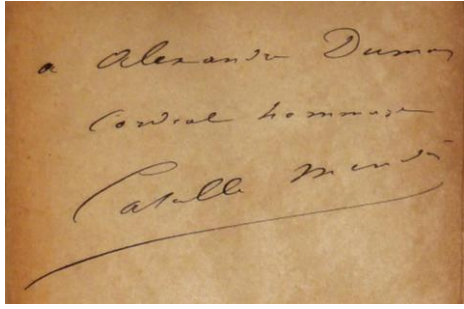 a Alexandre Dumas
Cordial hommage
Catulle Mendès